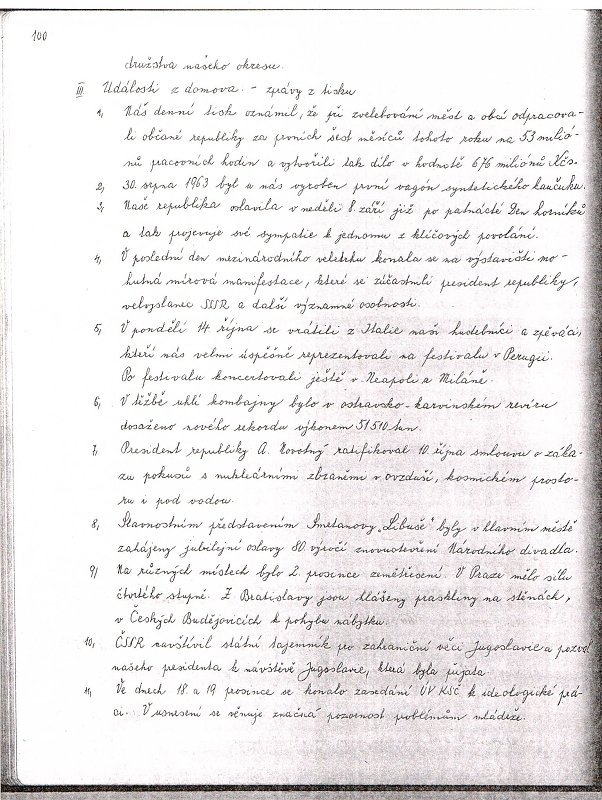 100
družstva našeho okresu.
III Události z domova. - zprávy z tisku
1, Náš denní tisk oznámil, že při zvelebování měst a obcí odpracova-
li občané republiky za prvních šest měsíců tohoto roku na 53 milió-
nů pracovních hodin a vytvořili tak dílo v hodnotě 676 miliónů Kčs.
2, 30. srpna 1963 byl u nás vyroben první vagón syntetického kaučuku.
3, Naše republika oslavila v neděli 8. září již po patnácté Den horníků
a tak projevuje své sympatie k jednomu z klíčových povolání.
4, V poslední den mezinárodního veletrhu konala se na výstavišti mo-
hutná mírová manifestace, které se zúčastnili president republiky,
velvyslanec SSSR a další významné osobnosti.
5, V pondělí 14. října se vrátili z Italie naši hudebníci a zpěváci,
kteří nás velmi úspěšně reprezentovali na festivalu v Perugii.
Po festivalu koncertovali ještě v Neapoli a Miláně.
6, V těžbě uhlí kombajny bylo v ostravsko-karvinském revíru
dosaženo nového rekordu výkonem 51510 tun.
7, President republiky A. Novotný ratifikoval 10. října smlouvu o záka-
zu pokusů s nukleárními zbraněmi v ovzduší, kosmickém prosto-
ru i pod vodou.
8, Slavnostním představením Smetanovy „Libuše" byly v hlavním městě
zahájeny jubilejní oslavy 80. výročí znovuotevření Národního divadla.
9, Na různých místech bylo 2. prosince zemětřesení. V Praze mělo sílu
čtvrtého stupně. Z Bratislavy jsou hlášeny praskliny na stěnách,
v Českých Budějovicích k pohybu nábytku.
10, ČSSR navštívil státní tajemník pro zahraniční věci Jugoslavie a pozval
našeho presidenta k návštěvě Jugoslavie, která byla přijata.
11, Ve dnech 18. a 19. prosince se konalo zasedání ÚV KSČ k ideologické prá-
ci. V usnesení se věnuje značná pozornost problémům mládeže.